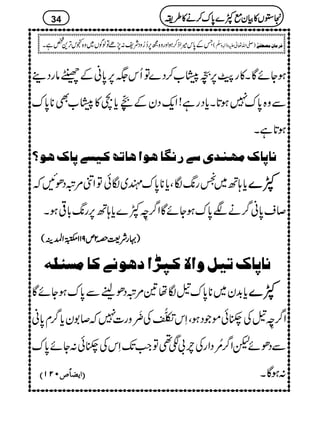 نجاستوں کا بیان مع کپڑے پاک کرنے کا طریقہ
34
فرمانِ مصطفٰے (صلی اللہ تعالیٰ علیہ والہ وسلم) جس کے پاس میرا ذکر ہوا اور وہ مجھ پر دُرود شریف نہ پڑھے تو لوگوں میں وہ کنجوس ترین شخص ہے۔
ہو جائے گا۔ کارپیٹ پر بچّہ پیشاب کر دے تو اُس جگہ پر پانی کے چھینٹے مار دینے
سے وہ پاک نہیں ہوتا۔ یاد رہے! ایک دن کے بچّے یا بچّی کا پیشاب بھی ناپاک
ہوتا ہے۔
ناپاک مہندی سے رنگا ہوا ہاتھ کیسے پاک ہو؟
کپڑے یا ہاتھ میں نجس رنگ لگا، یا ناپاک مہندی لگائی تو اتنی مرتبہ دھوئیں کہ
صاف پانی گرنے لگے پاک ہو جائے گا اگرچہ کپڑے یا ہاتھ پر رنگ باقی ہو۔
(بہارِشریعت حصہ ۲ ص۱۱۹ مکتبۃ المدینہ)
ناپاک تیل والا کپڑا دھونے کا مسئلہ
کپڑے یا بدن میں ناپاک تیل لگا تھا تین مرتبہ دھو لینے سے پاک ہو جائے گا
اگرچہ تیل کی چکنائی موجود ہو، اِس تکلُّف کی ضَرورت نہیں کہ صابون یا گرم پانی
سے دھوئے لیکن اگر مُردار کی چربی لگی تھی تو جب تک اِس کی چکنائی نہ جائے پاک
نہ ہوگا۔
(ایضاً ص ۱۲۰)